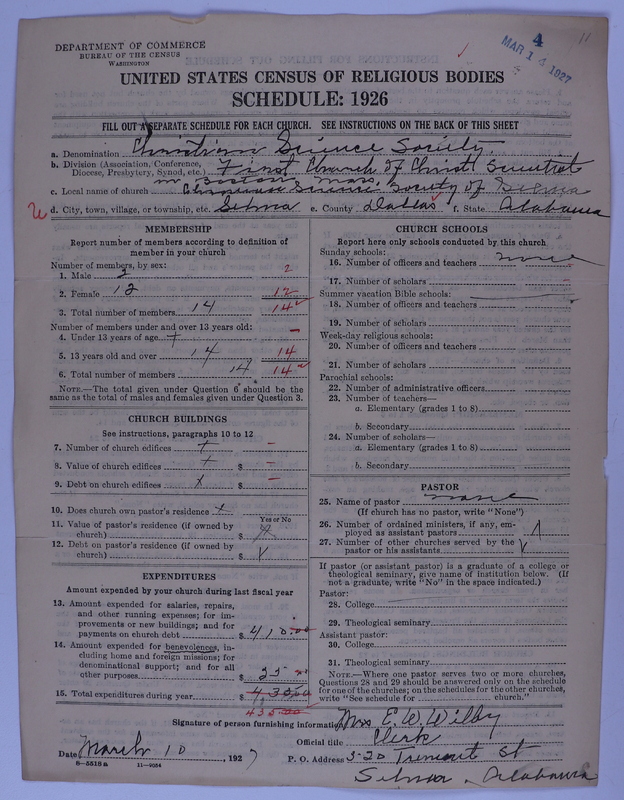 DEPARTMENT OF COMMERCE
BUREAU OF THE CENSUS
WASHINGTON
4
MAR 14 1927
UNITED STATES CENSUS OF RELIGIOUS BODIES
SCHEDULE: 1926
FILL OUT A SEPARATE SCHEDULE FOR EACH CHURCH. SEE INSTRUCTIONS ON THE BACK OF THIS SHEET
a. Denomination Christian Science Society
b. Division (Association, Conference, Diocese, Presbytery, Synod, etc.) First Church of Christ Scientist
in Boston, Mass.
c. Local name of church Christian Science Society of Selma
d. City, town, village, or township, etc. Selma e. County Dallas f. State Alabama
MEMBERSHIP
Report number of members according to definition of member in your church
Number of members, by sex:
1. Male 2 2
2. Female 12 12
3. Total number of members 14 14
Number of members under and over 13 years old:
4. Under 13 years of age –
5. 13 years old and over 14 14
6. Total number of members 14 14
NOTE.—The total given under Question 6 should be the same as the total of males and females given under Question 3.
CHURCH BUILDINGS
See instructions, paragraphs 10 to 12
7. Number of church edifices –
8. Value of church edifices $ –
9. Debt on church edifices x $ –
10. Does church own pastor's residence x
Yes or No
11. Value of pastor's residence (if owned by church) $ x
12. Debt on pastor's residence (if owned by church) $
EXPENDITURES
Amount expended by your church during last fiscal year
13. Amount expended for salaries, repairs, and other running expenses; for improvements or new buildings; and for payments on church debt $ 410.00
14. Amount expended for benevolences, including home and foreign missions; for denominational support; and for all other purposes $ 25
15. Total expenditures during year $ 435.00
435.00
CHURCH SCHOOLS
Report here only schools conducted by this church
Sunday schools:
16. Number of officers and teachers none
17. Number of scholars
Summer vacation Bible schools:
18. Number of officers and teachers
19. Number of scholars
Week-day religious schools:
20. Number of officers and teachers
21. Number of scholars
Parochial schools:
22. Number of administrative officers
23. Number of teachers—
a. Elementary (grades 1 to 8)
b. Secondary
24. Number of scholars—
a. Elementary (grades 1 to 8)
b. Secondary
PASTOR
25. Name of pastor none
(If church has no pastor, write "None")
26. Number of ordained ministers, if any, employed as assistant pastors
27. Number of other churches served by the pastor or his assistants
If pastor (or assistant pastor) is a graduate of a college or theological seminary, give name of institution below. (If not a graduate, write "No" in the space indicated.)
Pastor:
28. College
29. Theological seminary
Assistant pastor:
30. College
31. Theological seminary
NOTE.—Where one pastor serves two or more churches, Questions 28 and 29 should be answered only on the schedule for one of the churches; on the schedules for the other churches, write "See schedule for church."
Signature of person furnishing information Mrs. E. W. Wilby
Official title Clerk
Date March 10, 1927 P. O. Address 520 Tremont St
8—5518 a 11—9054
Selma, Alabama